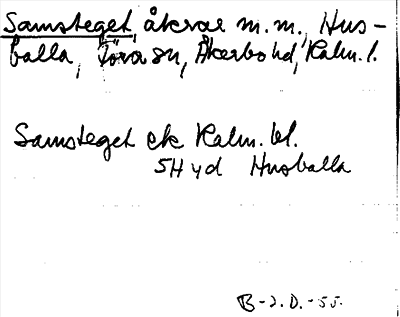 Samsteget åkrar m.m., Hus-
balla, Töra sn, Åkerbo hd, Kalm. l.
Samsteget ek Kalm. bl.
5H yd Husballa
B-J.D.-55.